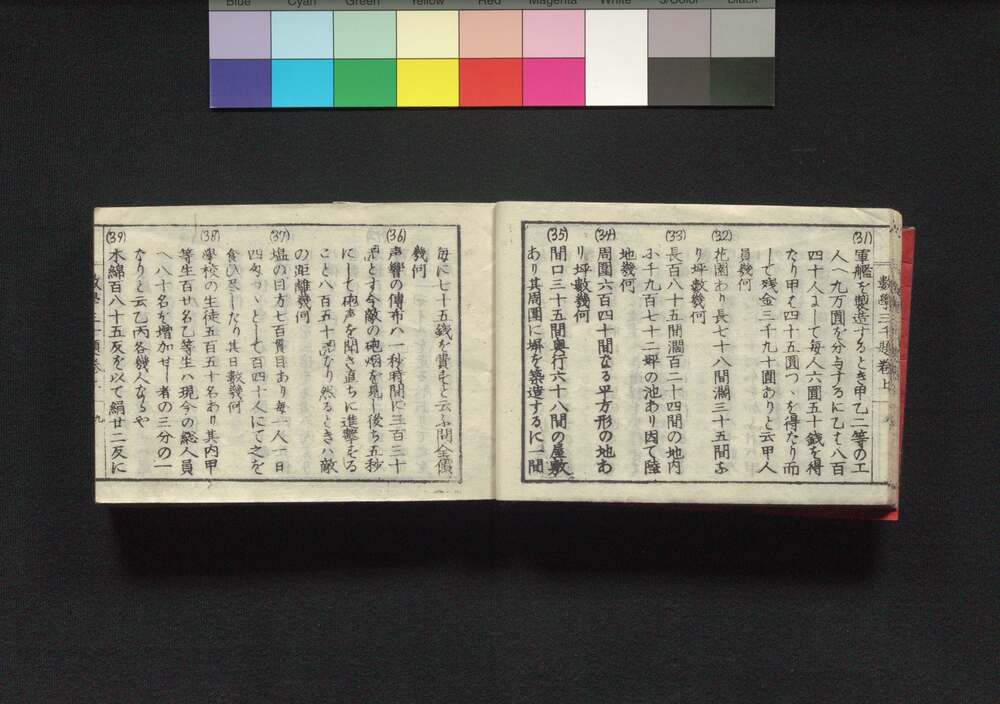 Blue Cyan Green Yellow Red Magenta White 3/Color Black
數學三千題卷上
(31)
軍艦を製造するとき甲乙二等の工
人へ九万圓を分与するに乙は八百
四十人にして毎人六圓五十錢を得
たり甲は四十五圓つゝを得たり而
して残金三千九十圓ありと云甲人
員幾何
(32)
花園あり長七十八間濶三十五間な
り坪數幾何
(33)
長百八十五間濶百二十四間の地内
に千九百七十二坪の池あり因て陸
地幾何
(34)
周圍六百四十間なる平方形の地あ
り坪數幾何
(35)
間口三十五間奥行六十八間の屋敷
あり其周圍に塀を築造するに一間
毎に七十五錢を費すと云ふ問全價
幾何
(36)
声響の傳布ハ一秒時間に三百三十
とす今敵の砲烟を見し後ち五秒
にして砲声を聞き直ちに進撃する
こと八百五十なり然るときハ敵
の距離幾何
(37)
塩の目方七百貫目あり毎一人一日
四匁つゝとして百四十人にて之を
食ひ尽したり其日數幾何
(38)
學校の生徒五百五十名あり其内甲
等生百廿名乙等生ハ現今の総人員
へ八十名を増加せし者の三分の一
なりと云乙丙各幾人なるや
(39)
木綿百八十五反を以て絹廿二反に